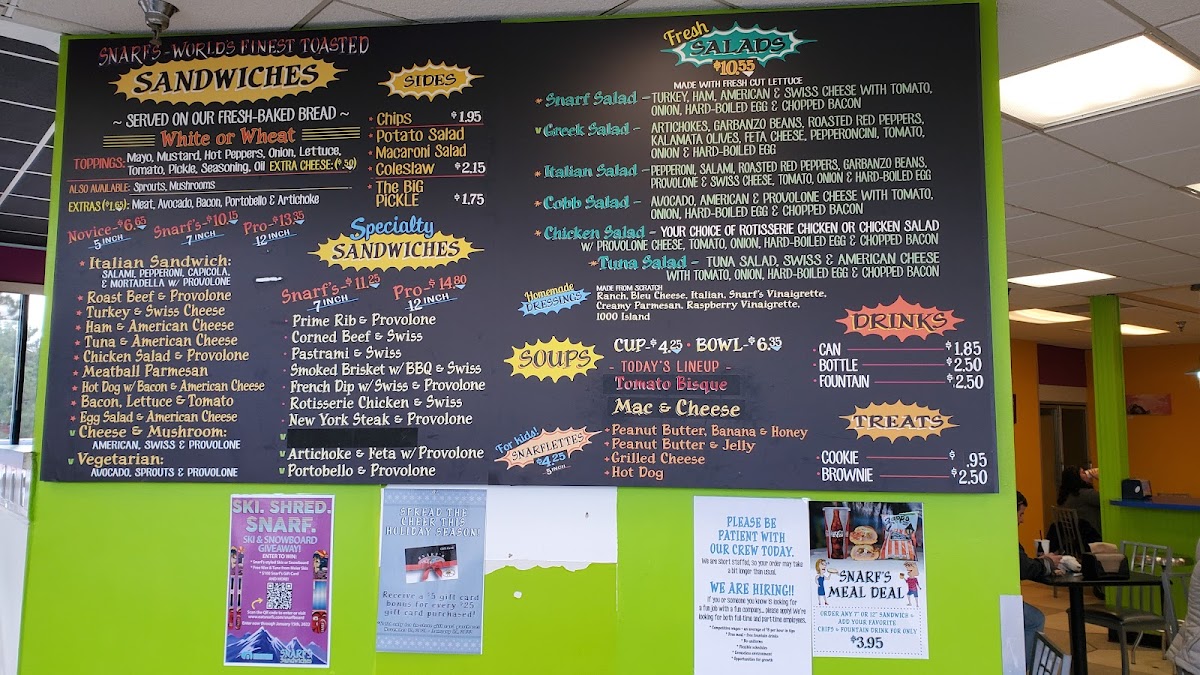 SNARF'S - WORLD'S FINEST TOASTED
SANDWICHES
~ SERVED ON OUR FRESH-BAKED BREAD ~
White or Wheat
TOPPINGS: Mayo, Mustard, Hot Peppers, Onion, Lettuce,
Tomato, Pickle, Seasoning, Oil EXTRA CHEESE: ($.50)
ALSO AVAILABLE: Sprouts, Mushrooms
EXTRAS ($1.65): Meat, Avocado, Bacon, Portobello & Artichoke
Novice-$6.65 Snarf's-$10.15 Pro-$13.35
5 INCH 7 INCH 12 INCH
Italian Sandwich:
SALAMI, PEPPERONI, CAPICOLA,
& MORTADELLA W/ PROVOLONE
Roast Beef & Provolone
Turkey & Swiss Cheese
Ham & American Cheese
Tuna & American Cheese
Chicken Salad & Provolone
Meatball Parmesan
Hot Dog w/ Bacon & American Cheese
Bacon, Lettuce & Tomato
Egg Salad & American Cheese
Cheese & Mushroom:
AMERICAN, SWISS & PROVOLONE
Vegetarian:
AVOCADO, SPROUTS & PROVOLONE
SIDES
Chips $1.95
Potato Salad
Macaroni Salad
Coleslaw $2.15
The BIG
PICKLE $1.75
Specialty
SANDWICHES
Snarf's-$11.25 Pro-$14.80
7 INCH 12 INCH
Prime Rib & Provolone
Corned Beef & Swiss
Pastrami & Swiss
Smoked Brisket w/ BBQ & Swiss
French Dip w/ Swiss & Provolone
Rotisserie Chicken & Swiss
New York Steak & Provolone
Artichoke & Feta w/ Provolone
Portobello & Provolone
Fresh
SALADS
$10.55
MADE WITH FRESH CUT LETTUCE
Snarf Salad - TURKEY, HAM, AMERICAN & SWISS CHEESE WITH TOMATO,
ONION, HARD-BOILED EGG & CHOPPED BACON
Greek Salad - ARTICHOKES, GARBANZO BEANS, ROASTED RED PEPPERS,
KALAMATA OLIVES, FETA CHEESE, PEPPERONCINI, TOMATO,
ONION & HARD-BOILED EGG
Italian Salad - PEPPERONI, SALAMI, ROASTED RED PEPPERS, GARBANZO BEANS,
PROVOLONE & SWISS CHEESE, TOMATO, ONION & HARD-BOILED EGG
Cobb Salad - AVOCADO, AMERICAN & PROVOLONE CHEESE WITH TOMATO,
ONION, HARD-BOILED EGG & CHOPPED BACON
Chicken Salad - YOUR CHOICE OF ROTISSERIE CHICKEN OR CHICKEN SALAD
W/ PROVOLONE CHEESE, TOMATO, ONION, HARD-BOILED EGG & CHOPPED BACON
Tuna Salad - TUNA SALAD, SWISS & AMERICAN CHEESE
WITH TOMATO, ONION, HARD-BOILED EGG & CHOPPED BACON
Homemade
DRESSINGS
MADE FROM SCRATCH
Ranch, Bleu Cheese, Italian, Snarf's Vinaigrette,
Creamy Parmesan, Raspberry Vinaigrette,
1000 Island
SOUPS
CUP-$4.25 • BOWL-$6.35
- TODAY'S LINEUP -
Tomato Bisque
Mac & Cheese
For kids!
SNARFLETTES
$4.25
5 INCH
Peanut Butter, Banana & Honey
Peanut Butter & Jelly
Grilled Cheese
Hot Dog
DRINKS
CAN $1.85
BOTTLE $2.50
FOUNTAIN $2.50
TREATS
COOKIE $.95
BROWNIE $2.50
SKI. SHRED.
SNARF.
SKI & SNOWBOARD
GIVEAWAY!
ENTER TO WIN:
AND MORE!
SNARF'S
Sandwiches
SPREAD THE
CHEER THIS
HOLIDAY SEASON!
Receive a $5 gift card
bonus for every $25
gift card purchased!
PLEASE BE
PATIENT WITH
OUR CREW TODAY.
We are short staffed, so your order may take
a bit longer than usual.
WE ARE HIRING!!
If you or someone you know is looking for
a fun job with a fun company... please apply! We're
looking for both full-time and part-time employees.
* Competitive wages - an average of $5 per hour in tips
* Free meal - Free fountain drinks
* No uniforms
* Flexible schedules
* Opportunities for growth
SNARF'S
MEAL DEAL
ORDER ANY 7" OR 12" SANDWICH &
ADD YOUR FAVORITE
CHIPS & FOUNTAIN DRINK FOR ONLY
$3.95